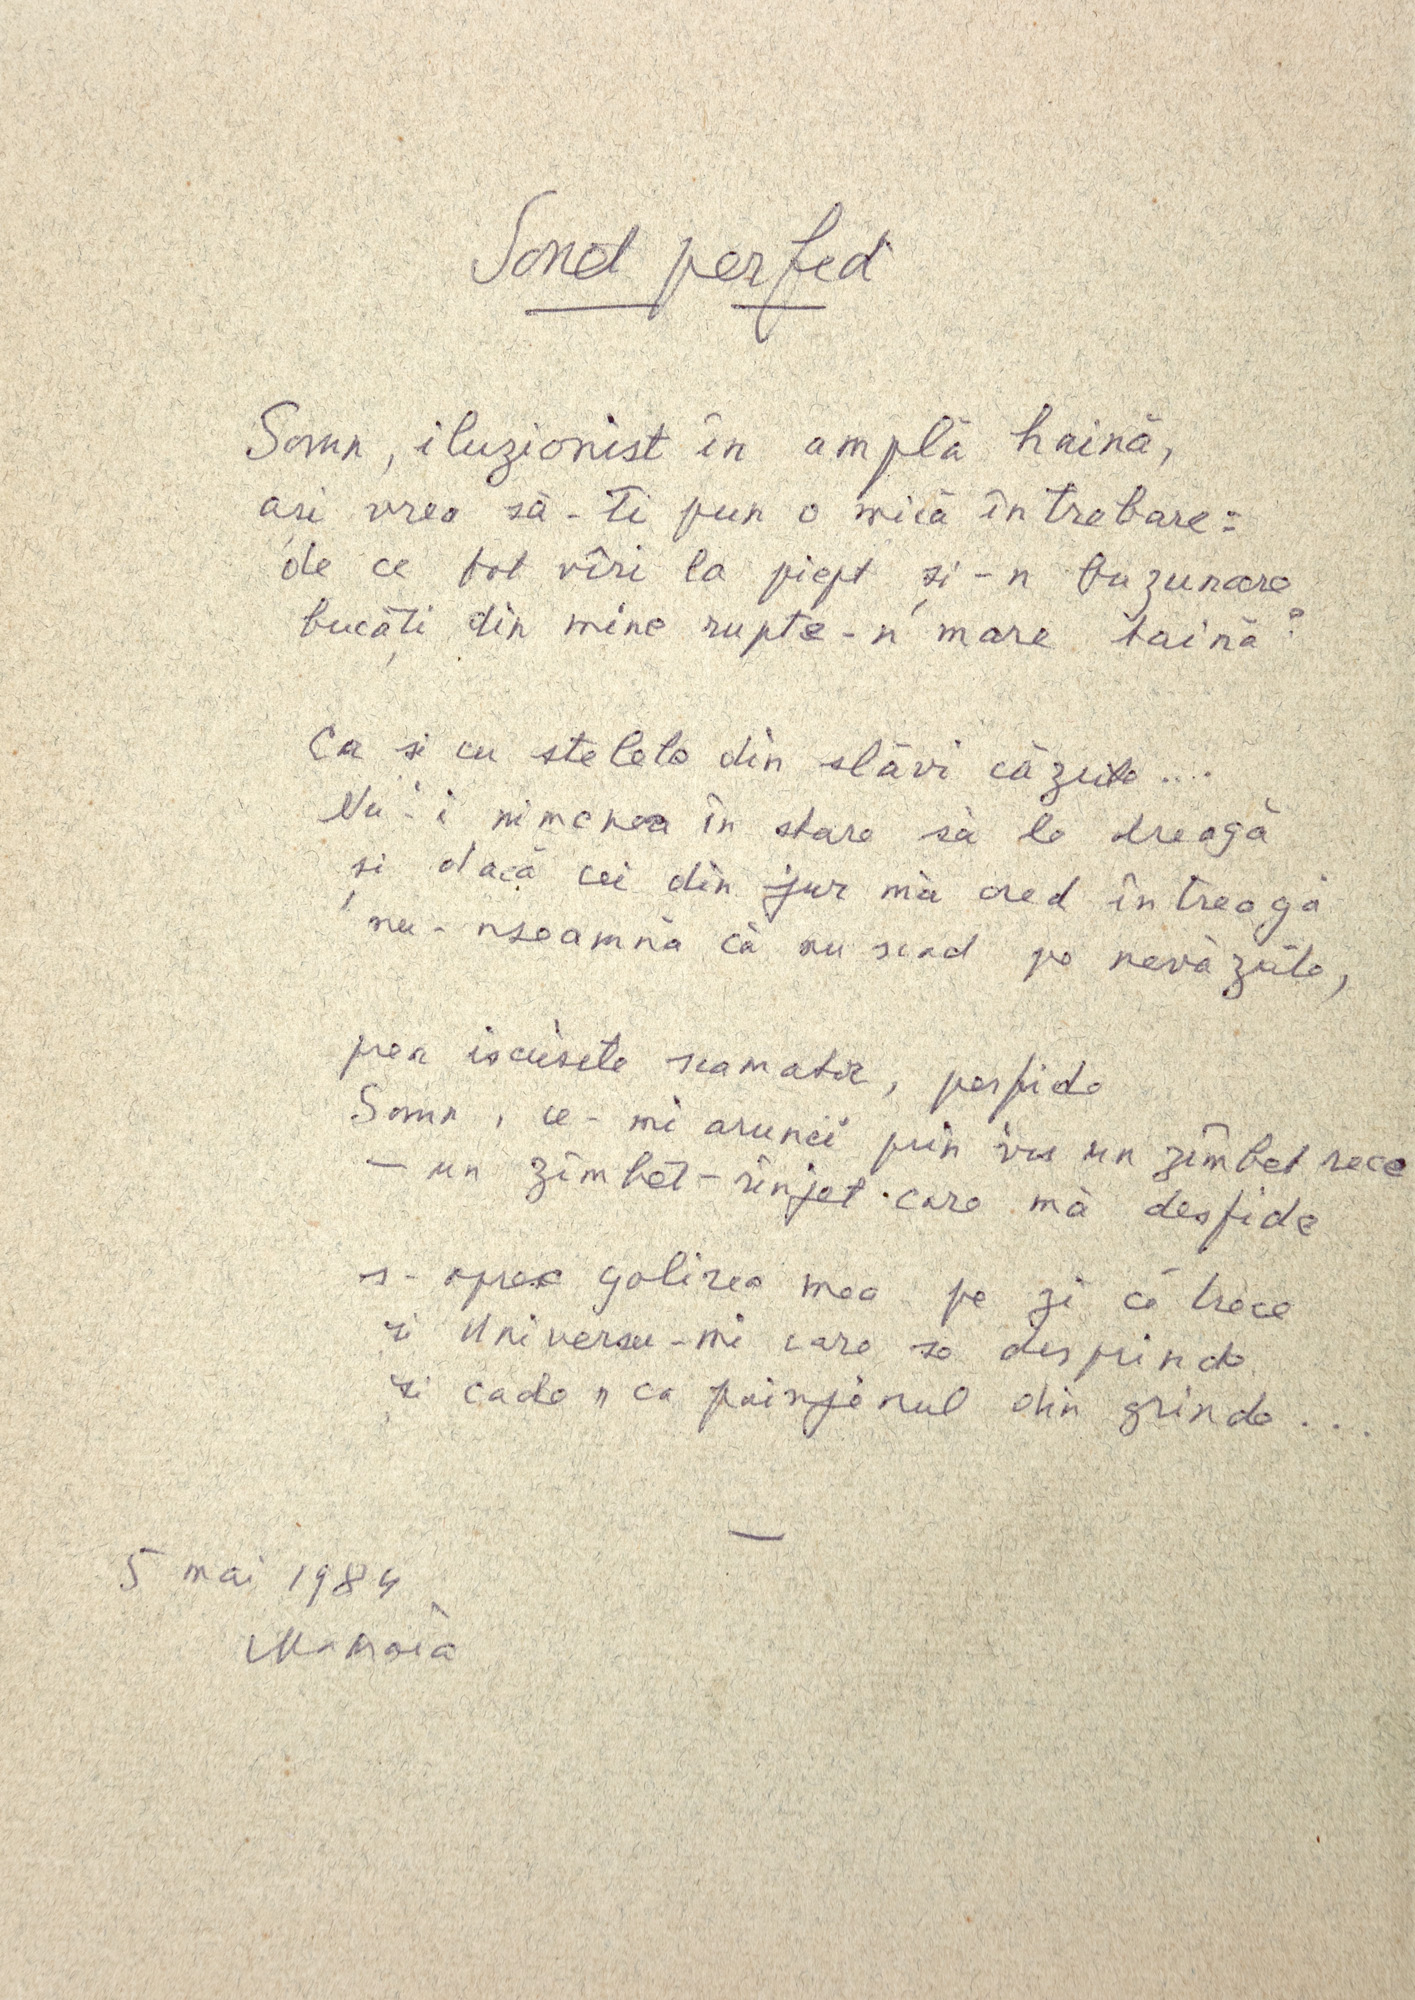 Sonet perfid
Somn, iluzionist în amplă haină,
aşi vrea să-ţi pun o mică întrebare:
de ce tot vîri la piept şi-n buzunare
bucăţi din mine rupte-n mare taină?
Ca şi cu stelele din slăvi căzute....
Nu-i nimenea în stare să le dreagă
şi dacă cei din jur mă cred întreagă
nu-nseamnă că nu scad pe nevăzute,
prea iscusite scamator, perfide
Somn, ce-mi arunci prin vis un zîmbet rece
- un zîmbet-rînjet care mă desfide
s-opresc golirea mea pe zi ce trece
şi Universu-mi care se desprinde
şi cade, ca painjenul din grinde...
5 mai 1984